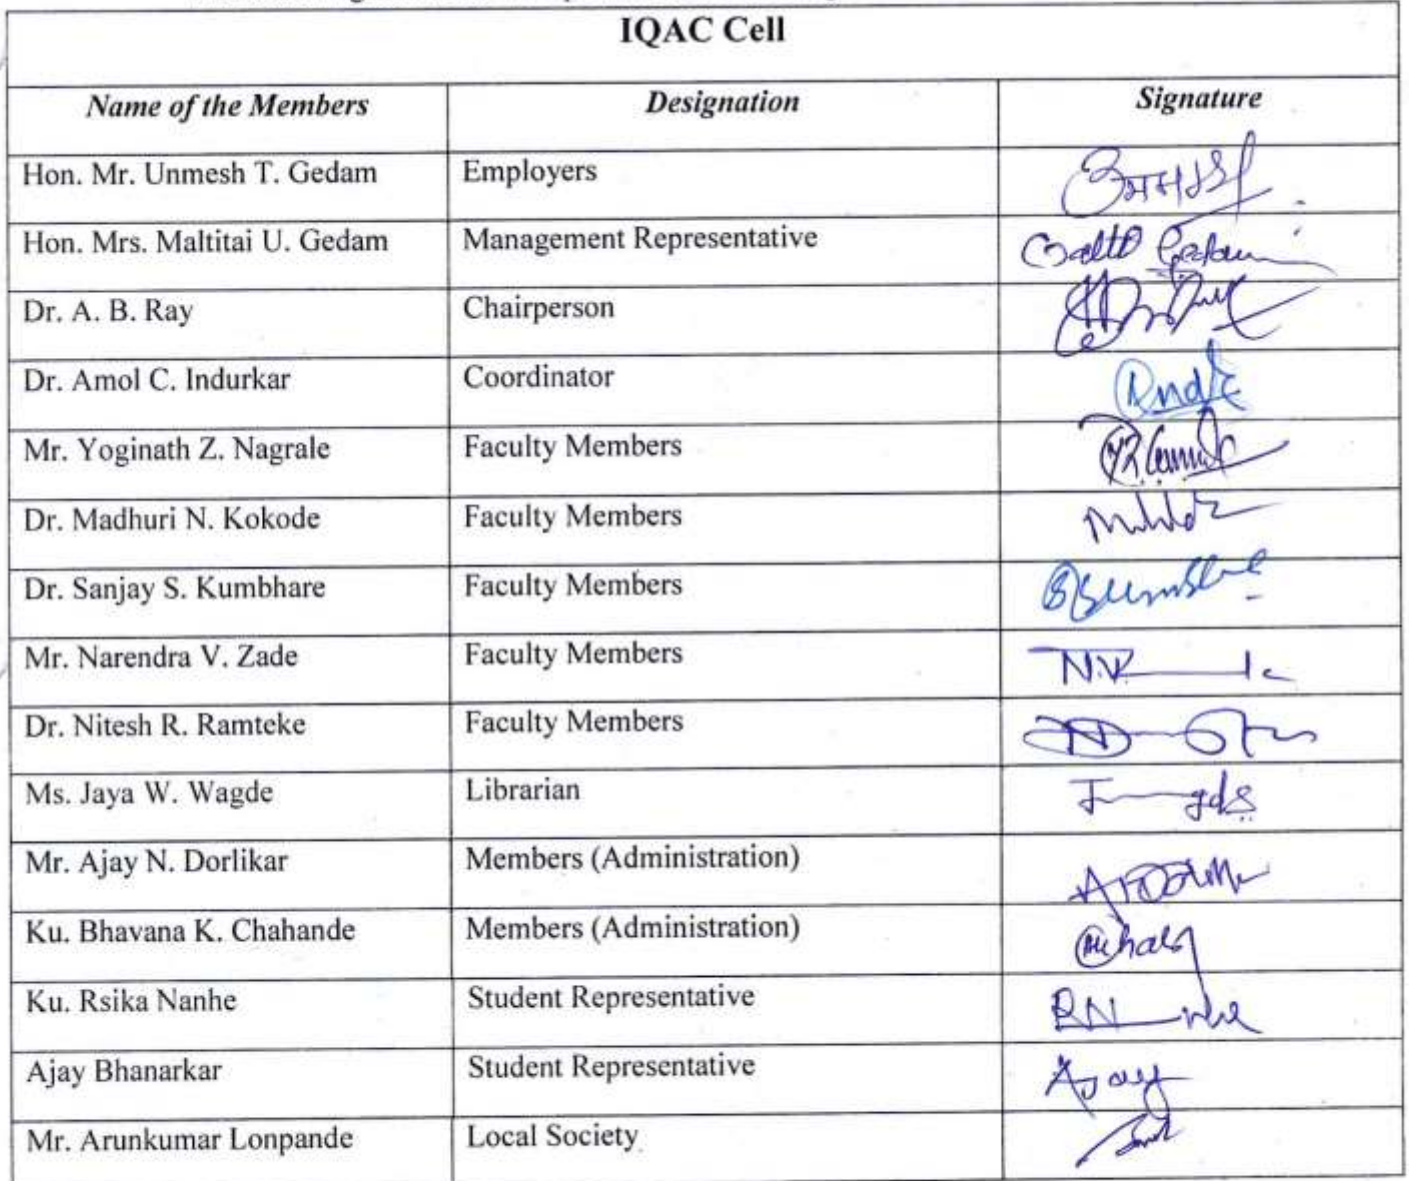 IQAC Cell
Name of the Members Designation Signature
Hon. Mr. Unmesh T. Gedam Employers
Hon. Mrs. Maltitai U. Gedam Management Representative Malti Gedam
Dr. A. B. Ray Chairperson
Dr. Amol C. Indurkar Coordinator
Mr. Yoginath Z. Nagrale Faculty Members
Dr. Madhuri N. Kokode Faculty Members
Dr. Sanjay S. Kumbhare Faculty Members
Mr. Narendra V. Zade Faculty Members
Dr. Nitesh R. Ramteke Faculty Members
Ms. Jaya W. Wagde Librarian
Mr. Ajay N. Dorlikar Members (Administration)
Ku. Bhavana K. Chahande Members (Administration)
Ku. Rsika Nanhe Student Representative
Ajay Bhanarkar Student Representative Ajay
Mr. Arunkumar Lonpande Local Society